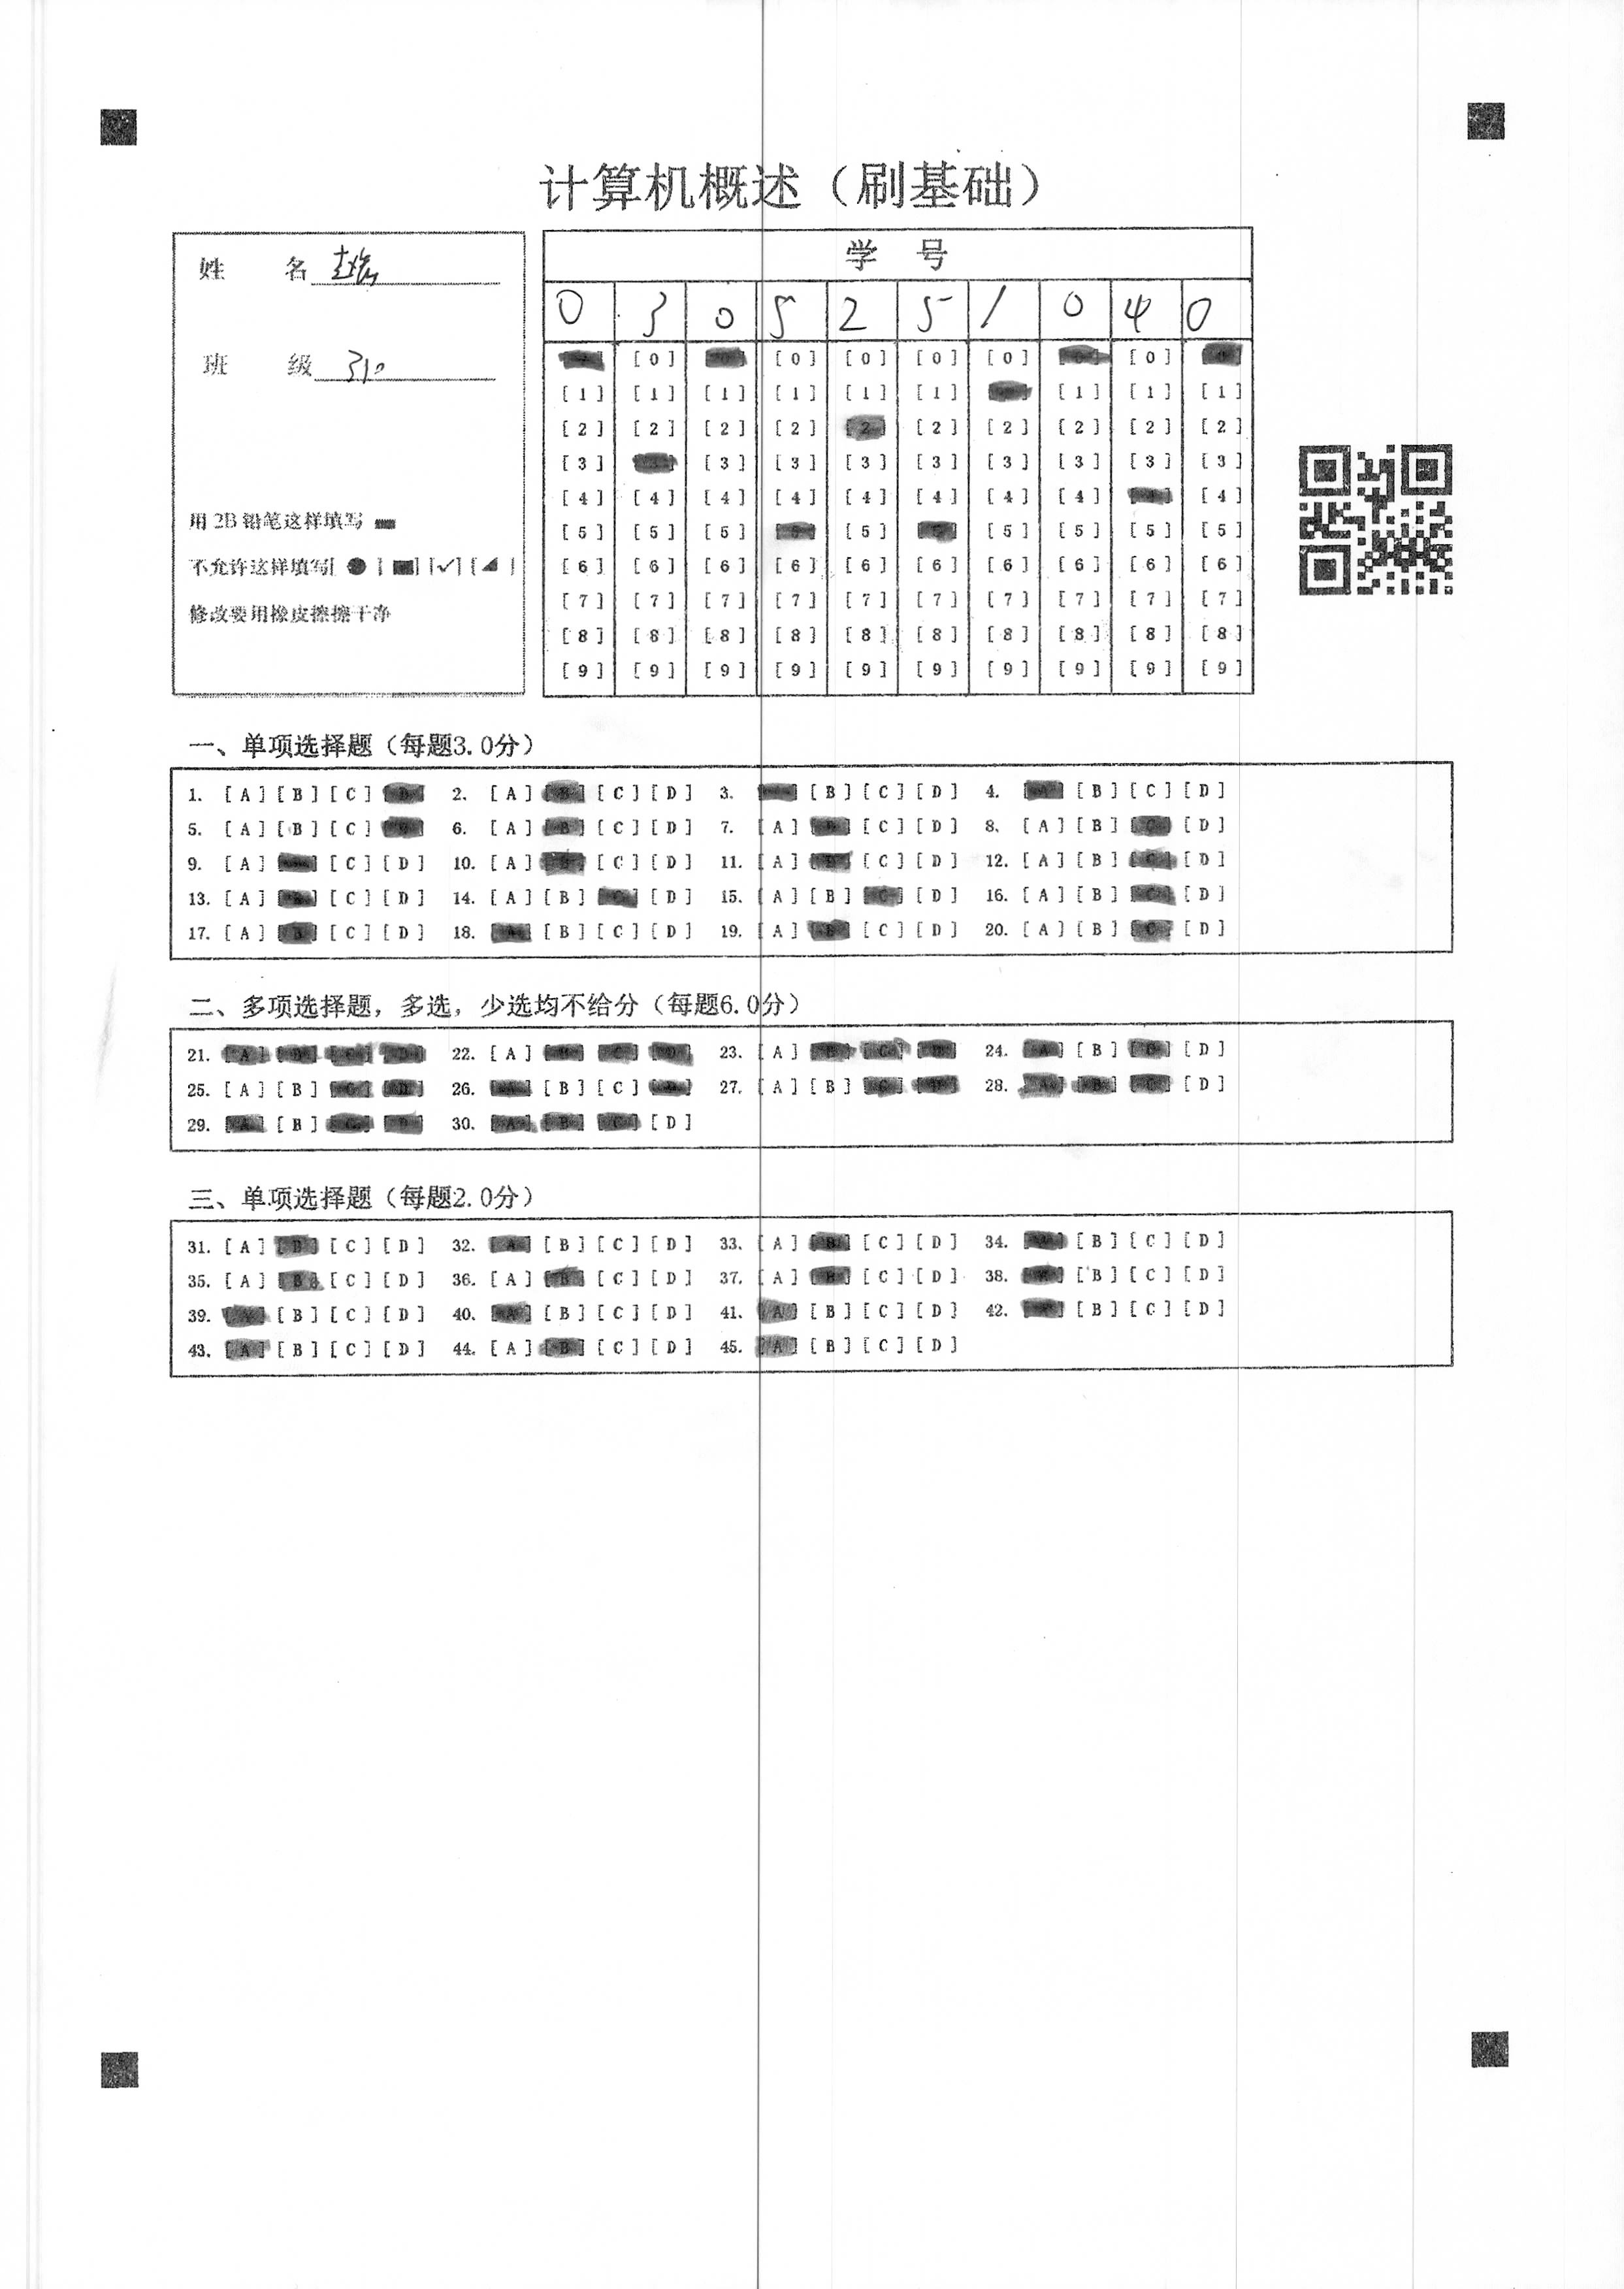 计算机概述（刷基础）
姓 名
班 级 310
用 2B 铅笔这样填写
不允许这样填写[ ● ] [ ■ ] [ ✓ ] [ ◢ ]
修改要用橡皮擦擦干净
学 号
0 3 0 5 2 5 1 0 4 0
[0] [0] [0] [0] [0] [0]
[1] [1] [1] [1] [1] [1] [1] [1] [1]
[2] [2] [2] [2] [2] [2] [2] [2] [2] [2]
[3] [3] [3] [3] [3] [3] [3] [3] [3]
[4] [4] [4] [4] [4] [4] [4] [4] [4] [4]
[5] [5] [5] [5] [5] [5] [5] [5]
[6] [6] [6] [6] [6] [6] [6] [6] [6] [6]
[7] [7] [7] [7] [7] [7] [7] [7] [7] [7]
[8] [8] [8] [8] [8] [8] [8] [8] [8] [8]
[9] [9] [9] [9] [9] [9] [9] [9] [9] [9]
一、单项选择题（每题3.0分）
1. [A] [B] [C] 2. [A] [C] [D] 3. [B] [C] [D] 4. [B] [C] [D]
5. [A] [B] [C] 6. [A] [B] [C] [D] 7. [A] [C] [D] 8. [A] [B] [C] [D]
9. [A] [C] [D] 10. [A] [C] [D] 11. [A] [C] [D] 12. [A] [B] [C] [D]
13. [A] [C] [D] 14. [A] [B] [C] [D] 15. [A] [B] [C] [D] 16. [A] [B] [C] [D]
17. [A] [C] [D] 18. [B] [C] [D] 19. [A] [C] [D] 20. [A] [B] [C] [D]
二、多项选择题，多选，少选均不给分（每题6.0分）
21. [A] 22. [A] 23. [A] [C] 24. [B] [D]
25. [A] [B] 26. [B] [C] 27. [A] [B] 28. [A] [B] [C] [D]
29. [A] [B] 30. [A] [B] [C] [D]
三、单项选择题（每题2.0分）
31. [A] [C] [D] 32. [A] [B] [C] [D] 33. [A] [B] [C] [D] 34. [B] [C] [D]
35. [A] [B] [C] [D] 36. [A] [B] [C] [D] 37. [A] [C] [D] 38. [B] [C] [D]
39. [A] [B] [C] [D] 40. [A] [B] [C] [D] 41. [A] [B] [C] [D] 42. [B] [C] [D]
43. [A] [B] [C] [D] 44. [A] [B] [C] [D] 45. [A] [B] [C] [D]